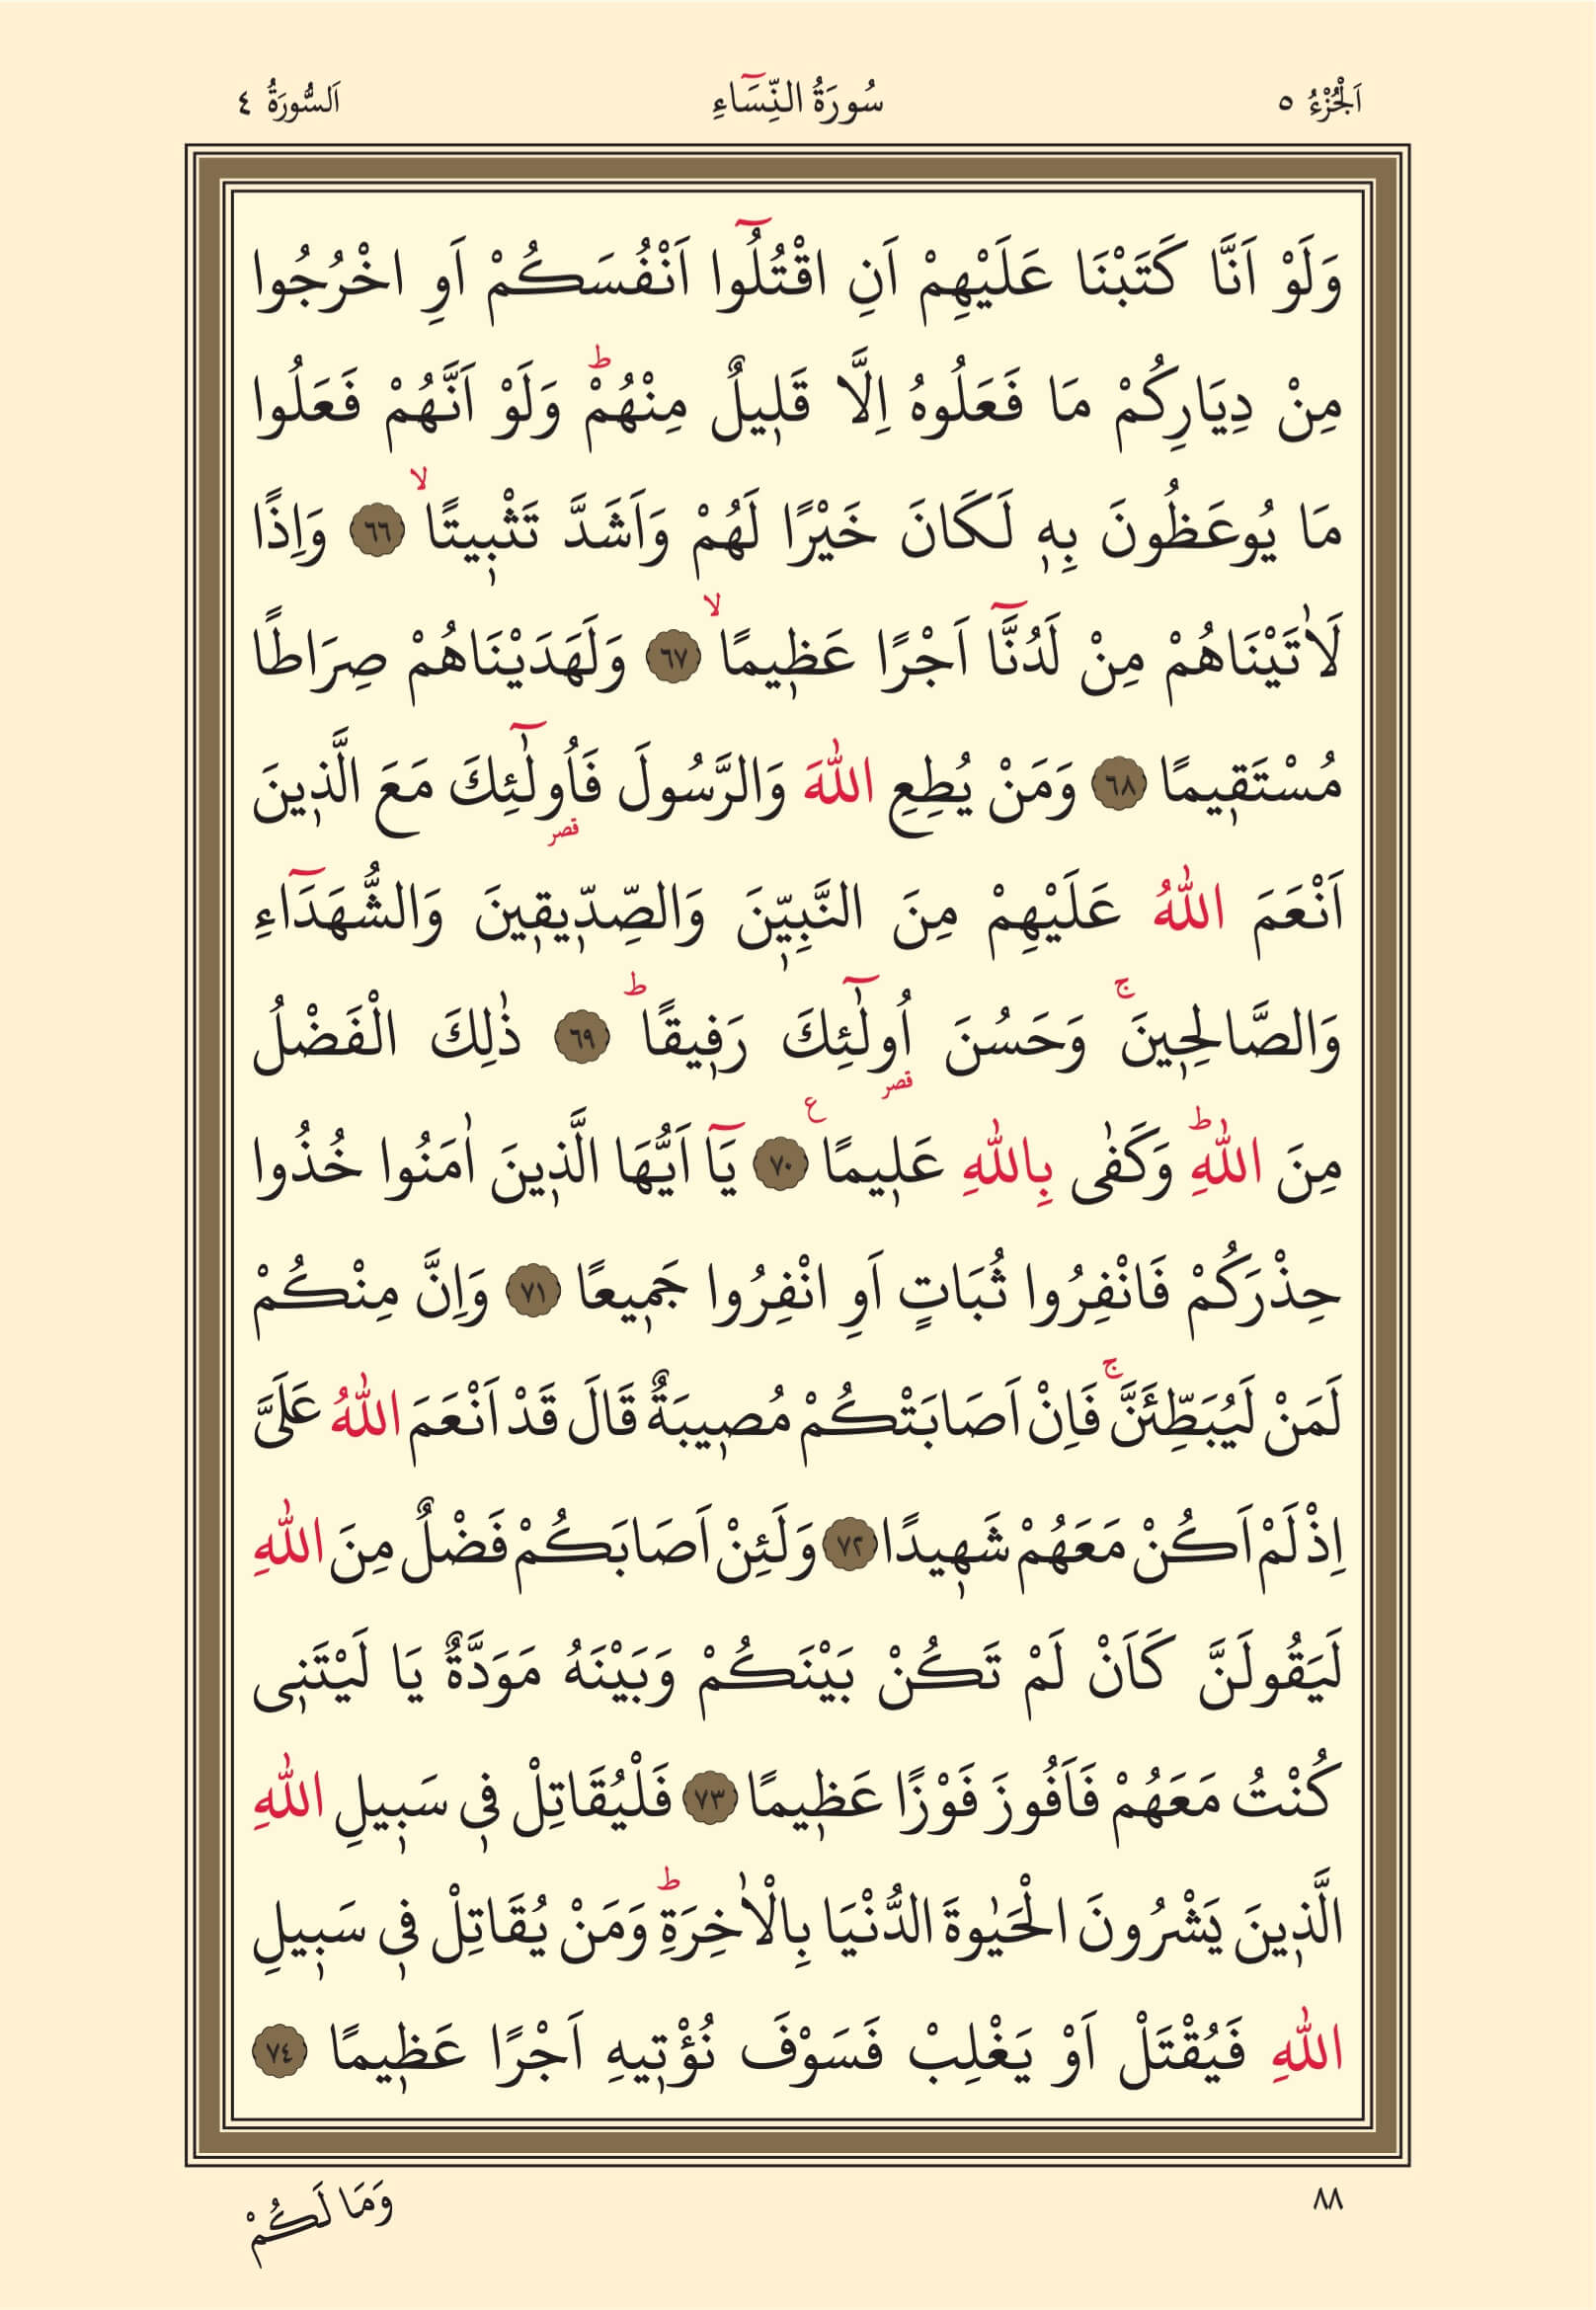 اَلْجُزْءُ ٥ سُورَةُ النِّسَٓاءِ اَلسُّورَةُ ٤
وَلَوْ اَنَّا كَتَبْنَا عَلَيْهِمْ اَنِ اقْتُلُٓوا اَنْفُسَكُمْ اَوِ اخْرُجُوا
مِنْ دِيَارِكُمْ مَا فَعَلُوهُ اِلَّا قَل۪يلٌ مِنْهُمْۜ وَلَوْ اَنَّهُمْ فَعَلُوا
مَا يُوعَظُونَ بِه۪ لَكَانَ خَيْرًا لَهُمْ وَاَشَدَّ تَثْب۪يتًاۙ ﴿٦٦﴾ وَاِذًا
لَاٰتَيْنَاهُمْ مِنْ لَدُنَّٓا اَجْرًا عَظ۪يمًاۙ ﴿٦٧﴾ وَلَهَدَيْنَاهُمْ صِرَاطًا
مُسْتَق۪يمًا ﴿٦٨﴾ وَمَنْ يُطِعِ اللّٰهَ وَالرَّسُولَ فَاُو۬لٰٓئِكَ مَعَ الَّذ۪ينَ
قصر
اَنْعَمَ اللّٰهُ عَلَيْهِمْ مِنَ النَّبِيّ۪نَ وَالصِّدّ۪يق۪ينَ وَالشُّهَدَٓاءِ
وَالصَّالِح۪ينَۚ وَحَسُنَ اُو۬لٰٓئِكَ رَف۪يقًاۜ ﴿٦٩﴾ ذٰلِكَ الْفَضْلُ
قصر
مِنَ اللّٰهِۜ وَكَفٰى بِاللّٰهِ عَل۪يمًا ع ﴿٧٠﴾ يَٓا اَيُّهَا الَّذ۪ينَ اٰمَنُوا خُذُوا
حِذْرَكُمْ فَانْفِرُوا ثُبَاتٍ اَوِ انْفِرُوا جَم۪يعًا ﴿٧١﴾ وَاِنَّ مِنْكُمْ
لَمَنْ لَيُبَطِّئَنَّۚ فَاِنْ اَصَابَتْكُمْ مُص۪يبَةٌ قَالَ قَدْ اَنْعَمَ اللّٰهُ عَلَيَّ
اِذْ لَمْ اَكُنْ مَعَهُمْ شَه۪يدًا ﴿٧٢﴾ وَلَئِنْ اَصَابَكُمْ فَضْلٌ مِنَ اللّٰهِ
لَيَقُولَنَّ كَاَنْ لَمْ تَكُنْ بَيْنَكُمْ وَبَيْنَهُ مَوَدَّةٌ يَا لَيْتَن۪ى
كُنْتُ مَعَهُمْ فَاَفُوزَ فَوْزًا عَظ۪يمًا ﴿٧٣﴾ فَلْيُقَاتِلْ ف۪ى سَب۪يلِ اللّٰهِ
الَّذ۪ينَ يَشْرُونَ الْحَيٰوةَ الدُّنْيَا بِالْاٰخِرَةِۜ وَمَنْ يُقَاتِلْ ف۪ى سَب۪يلِ
اللّٰهِ فَيُقْتَلْ اَوْ يَغْلِبْ فَسَوْفَ نُؤْت۪يهِ اَجْرًا عَظ۪يمًا ﴿٧٤﴾
٨٨ وَمَا لَكُمْ